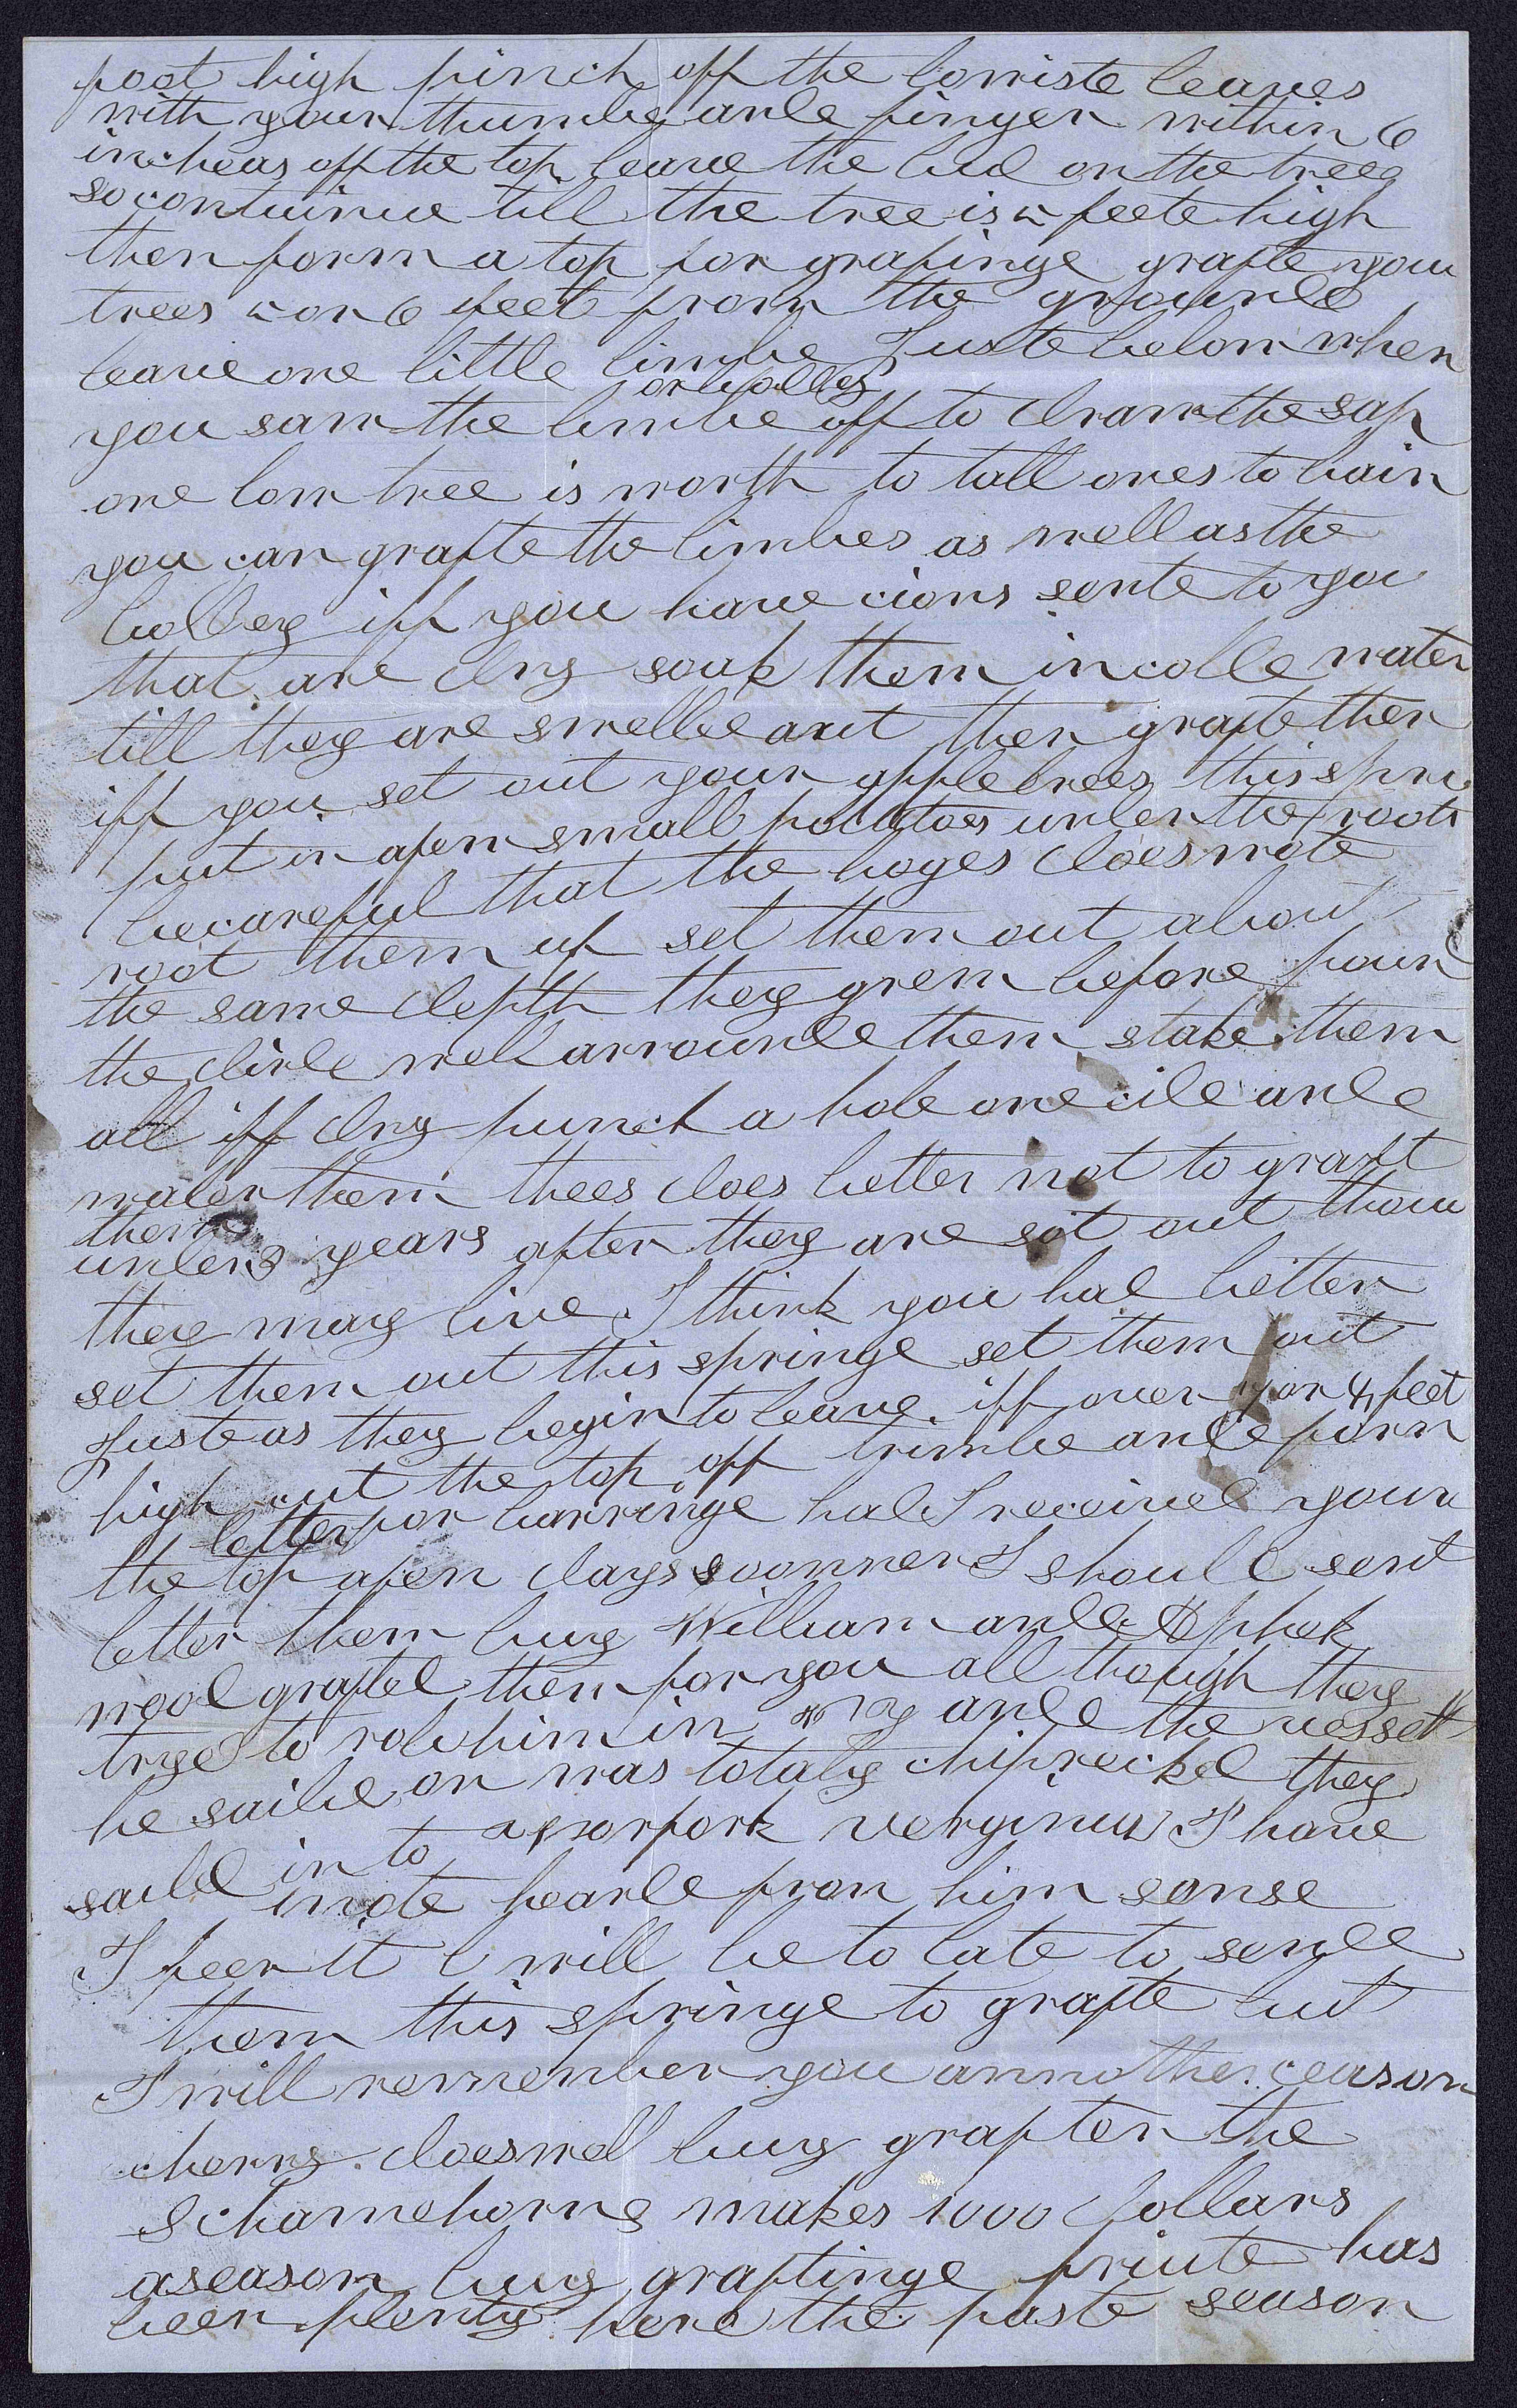 foot high pinch off the lowiste leaves
with your thumbe ande finger within 6
incheas off the top leave the bud on the tree
so continue till the tree is 5 feete high
then form a top for grafinge grafte your
trees 5 or 6 feet from the grounde
leave one little limbe Juste below when
or bodey
you saw the limbe off to draw the sap
one low tree is worth to tall ones to bair
you can grafte the limbes as well as the
bodey iff you have cions sente to you
that are dry soak them in colde water
till they are swelled out then grafte then
iff you set out your apple trees this spri
put in afew small potatoes under the roots
becareful that the hoges does note
root them up set them out about
the same depth they grew before pour
the dirte well arrounde them stake them
all iff dry punch a hole one cide ande
water them thees does better not to graft
them
under 3 years after they are set out thou
they may live I think you had better
set them out this springe set them out
Juste as they begin to leave. iff over 3 or 4 feet
high cut the top off trimbe ande form
the top for barringe had I received your
letter afew days soonner I should sent
them buy William ande
wood grafted them for you all though they
trye to rob him in ande the vessell
he saild on was totaly chipreckd they
saild in to Norfork verginia I have
note hearde from him sense
I feer it will be to late to sende
them this springe to grafte but
I will remember you annother ceason
cherry does well buy graften the
Schamehorne makes 1000 dollars
aseason buy graftinge friute has
been plenty here the paste season